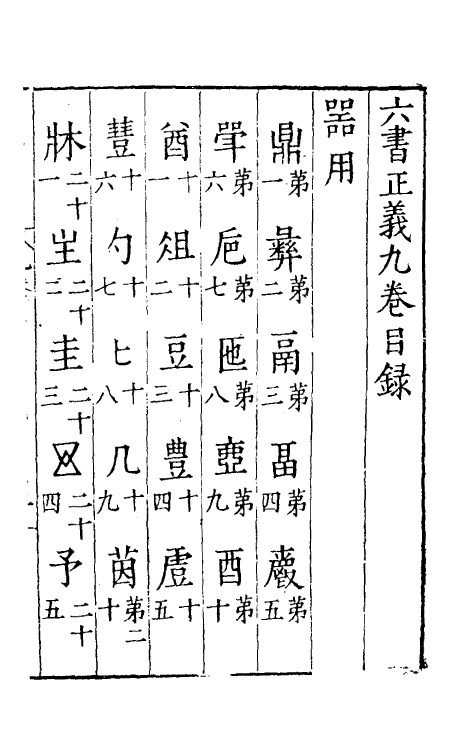 六書正義九卷目録
器用
鼎第一 彝第二 鬲第三 畐第四 鬳第五
斝第六 巵第七 匜第八 壺第九 酉第十
酋十一 俎十二 豆十三 豊十四 十五
十六 勺十七 匕十八 几十九 茵第二十
牀二十一 二十二 圭二十三 二十四 予二十五